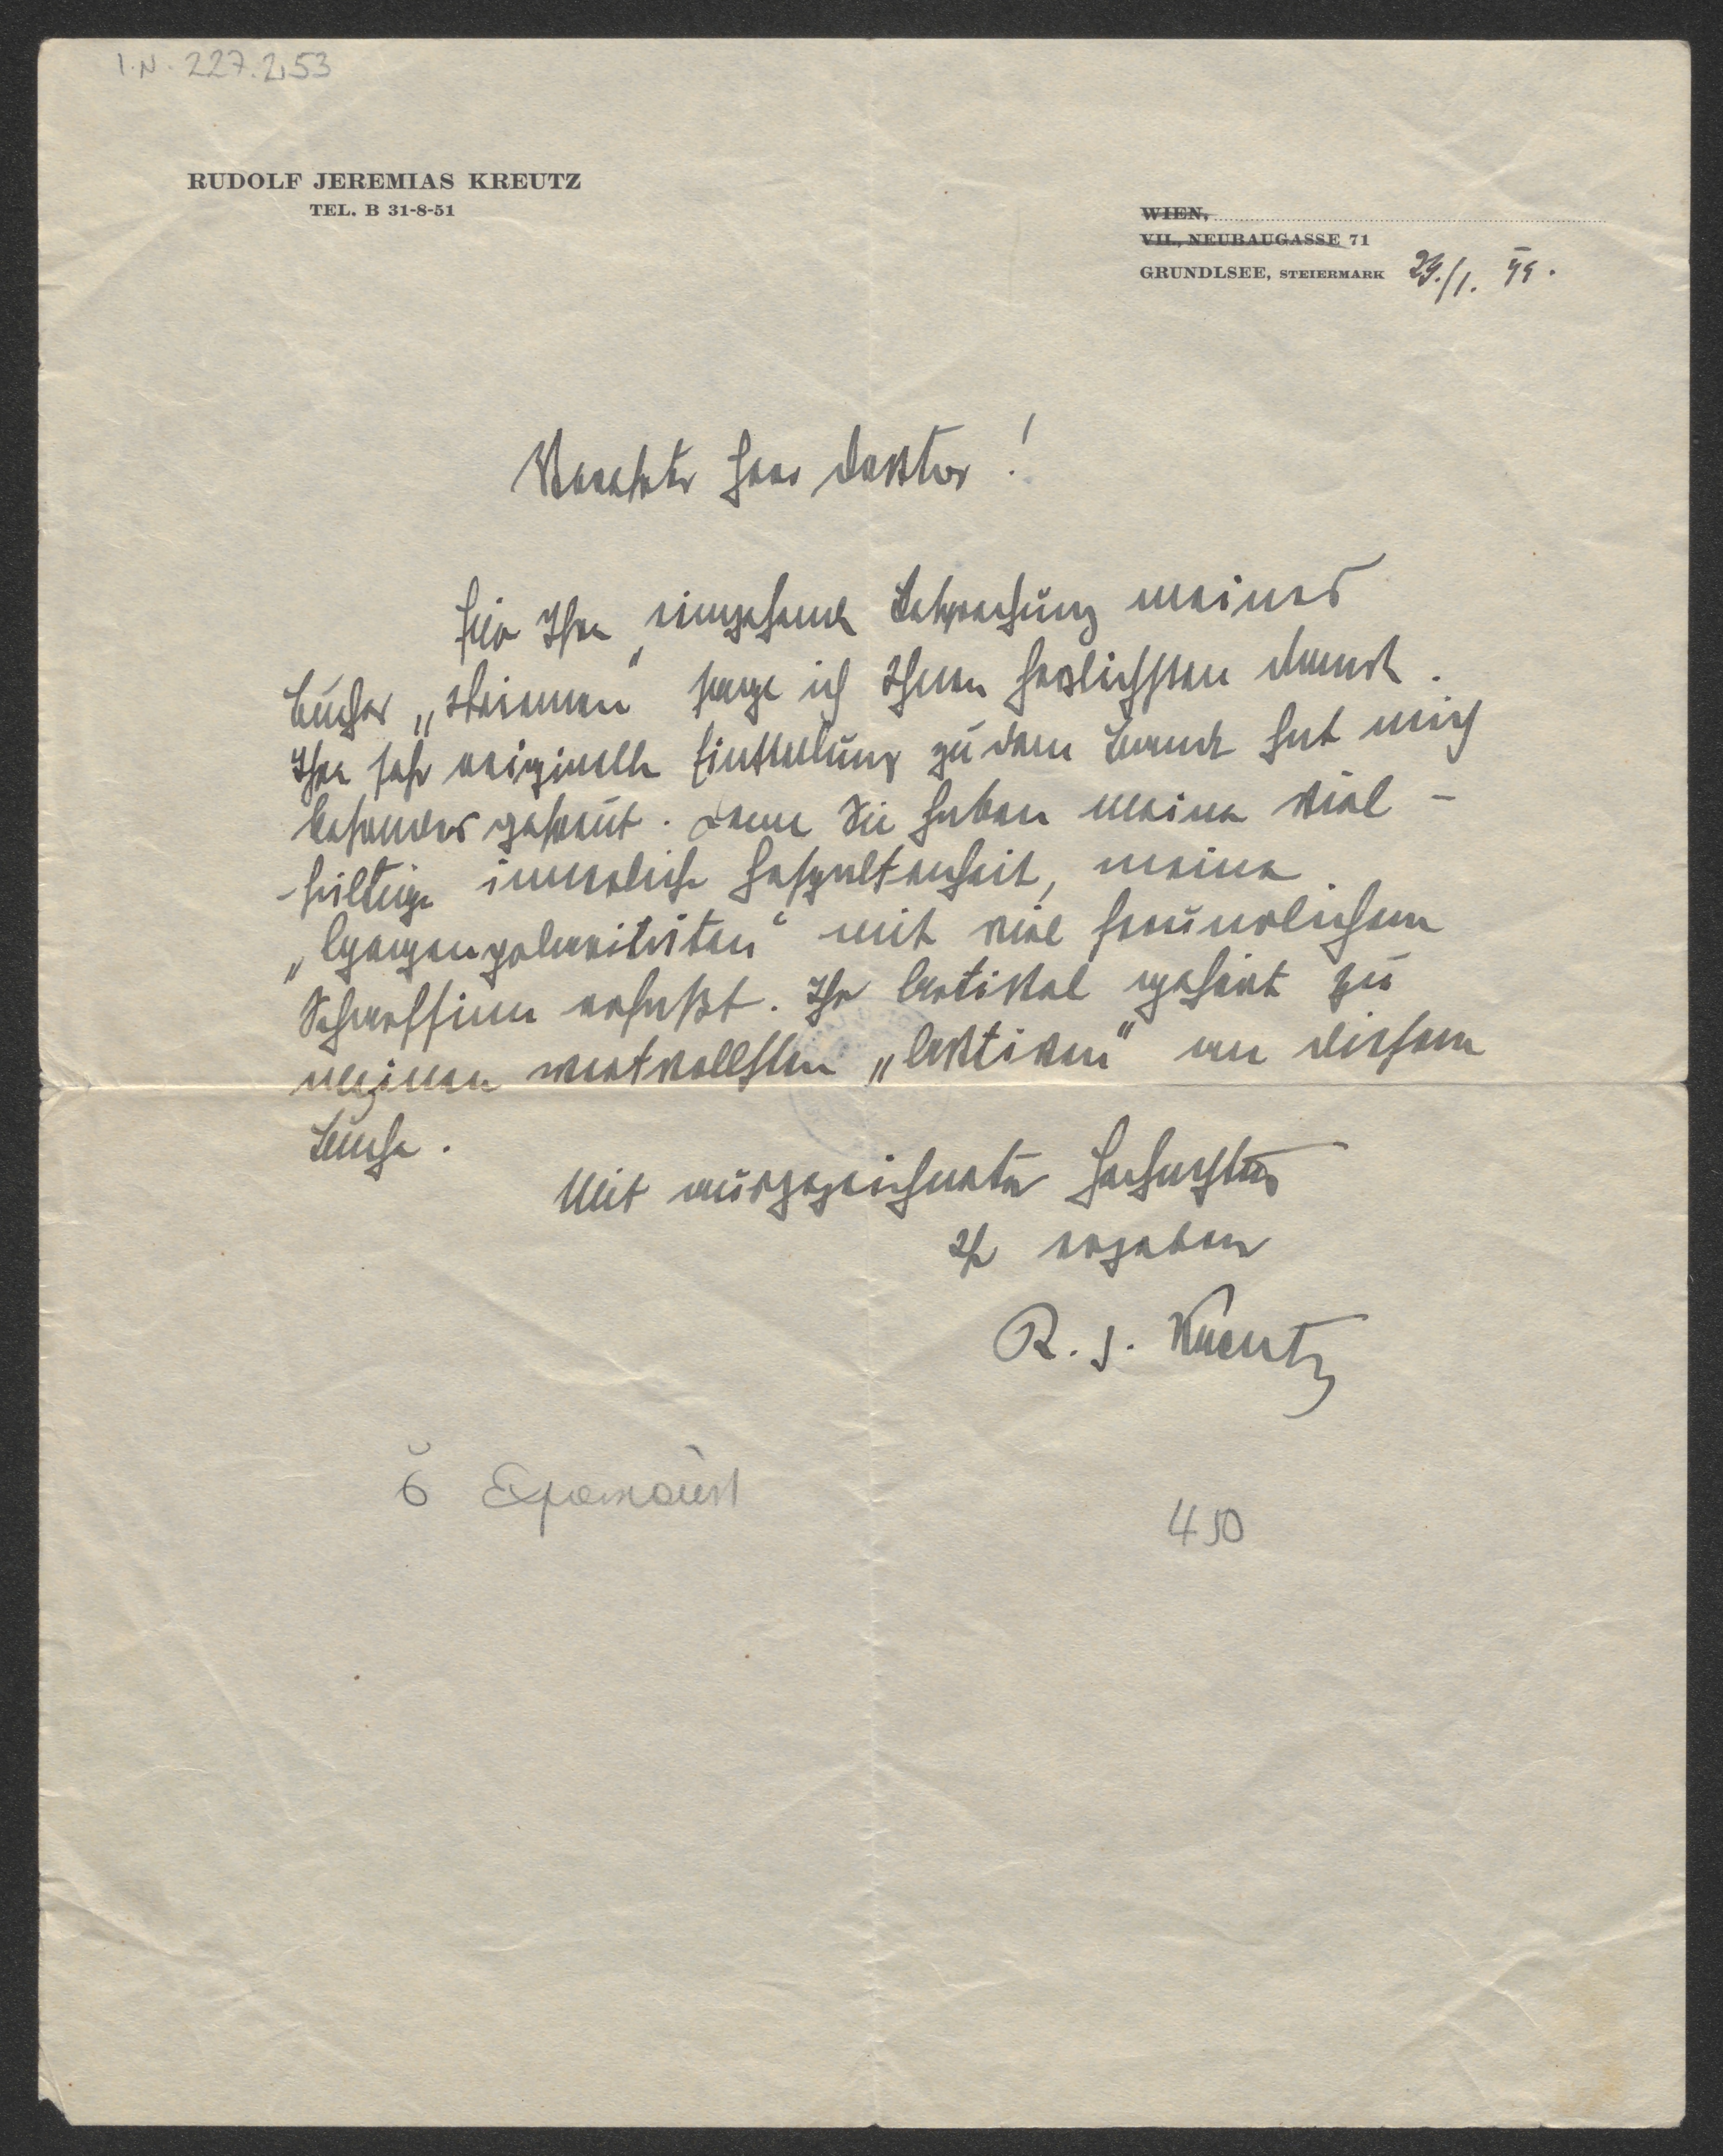 I.N. 227.253
RUDOLF JEREMIAS KREUTZ
TEL. B 31-8-51
WIEN,
VII., NEUBAUGASSE 71
GRUNDLSEE, STEIERMARK 29./1.
Verehrter Herr Doktor!
Für Ihre eingehende Besprechung meines
Buches „Stimmen“ sage ich Ihnen herzlichsten Dank.
Ihre sehr originelle Einstellung zu dem Bande hat mich
besonders gefreut. Denn Sie haben meine viel-
-fältige innerliche Gespaltenheit, meine
„Gegenpolaritäten“ mit viel freundlichem
Scharfsinn erfaßt. Ihr Artikel gehört zu
meinen wertvollsten „Aktiven“ an diesem
Buche.
Mit ausgezeichneter Hochachtung
Ihr ergebener
R. J. Kreutz
450